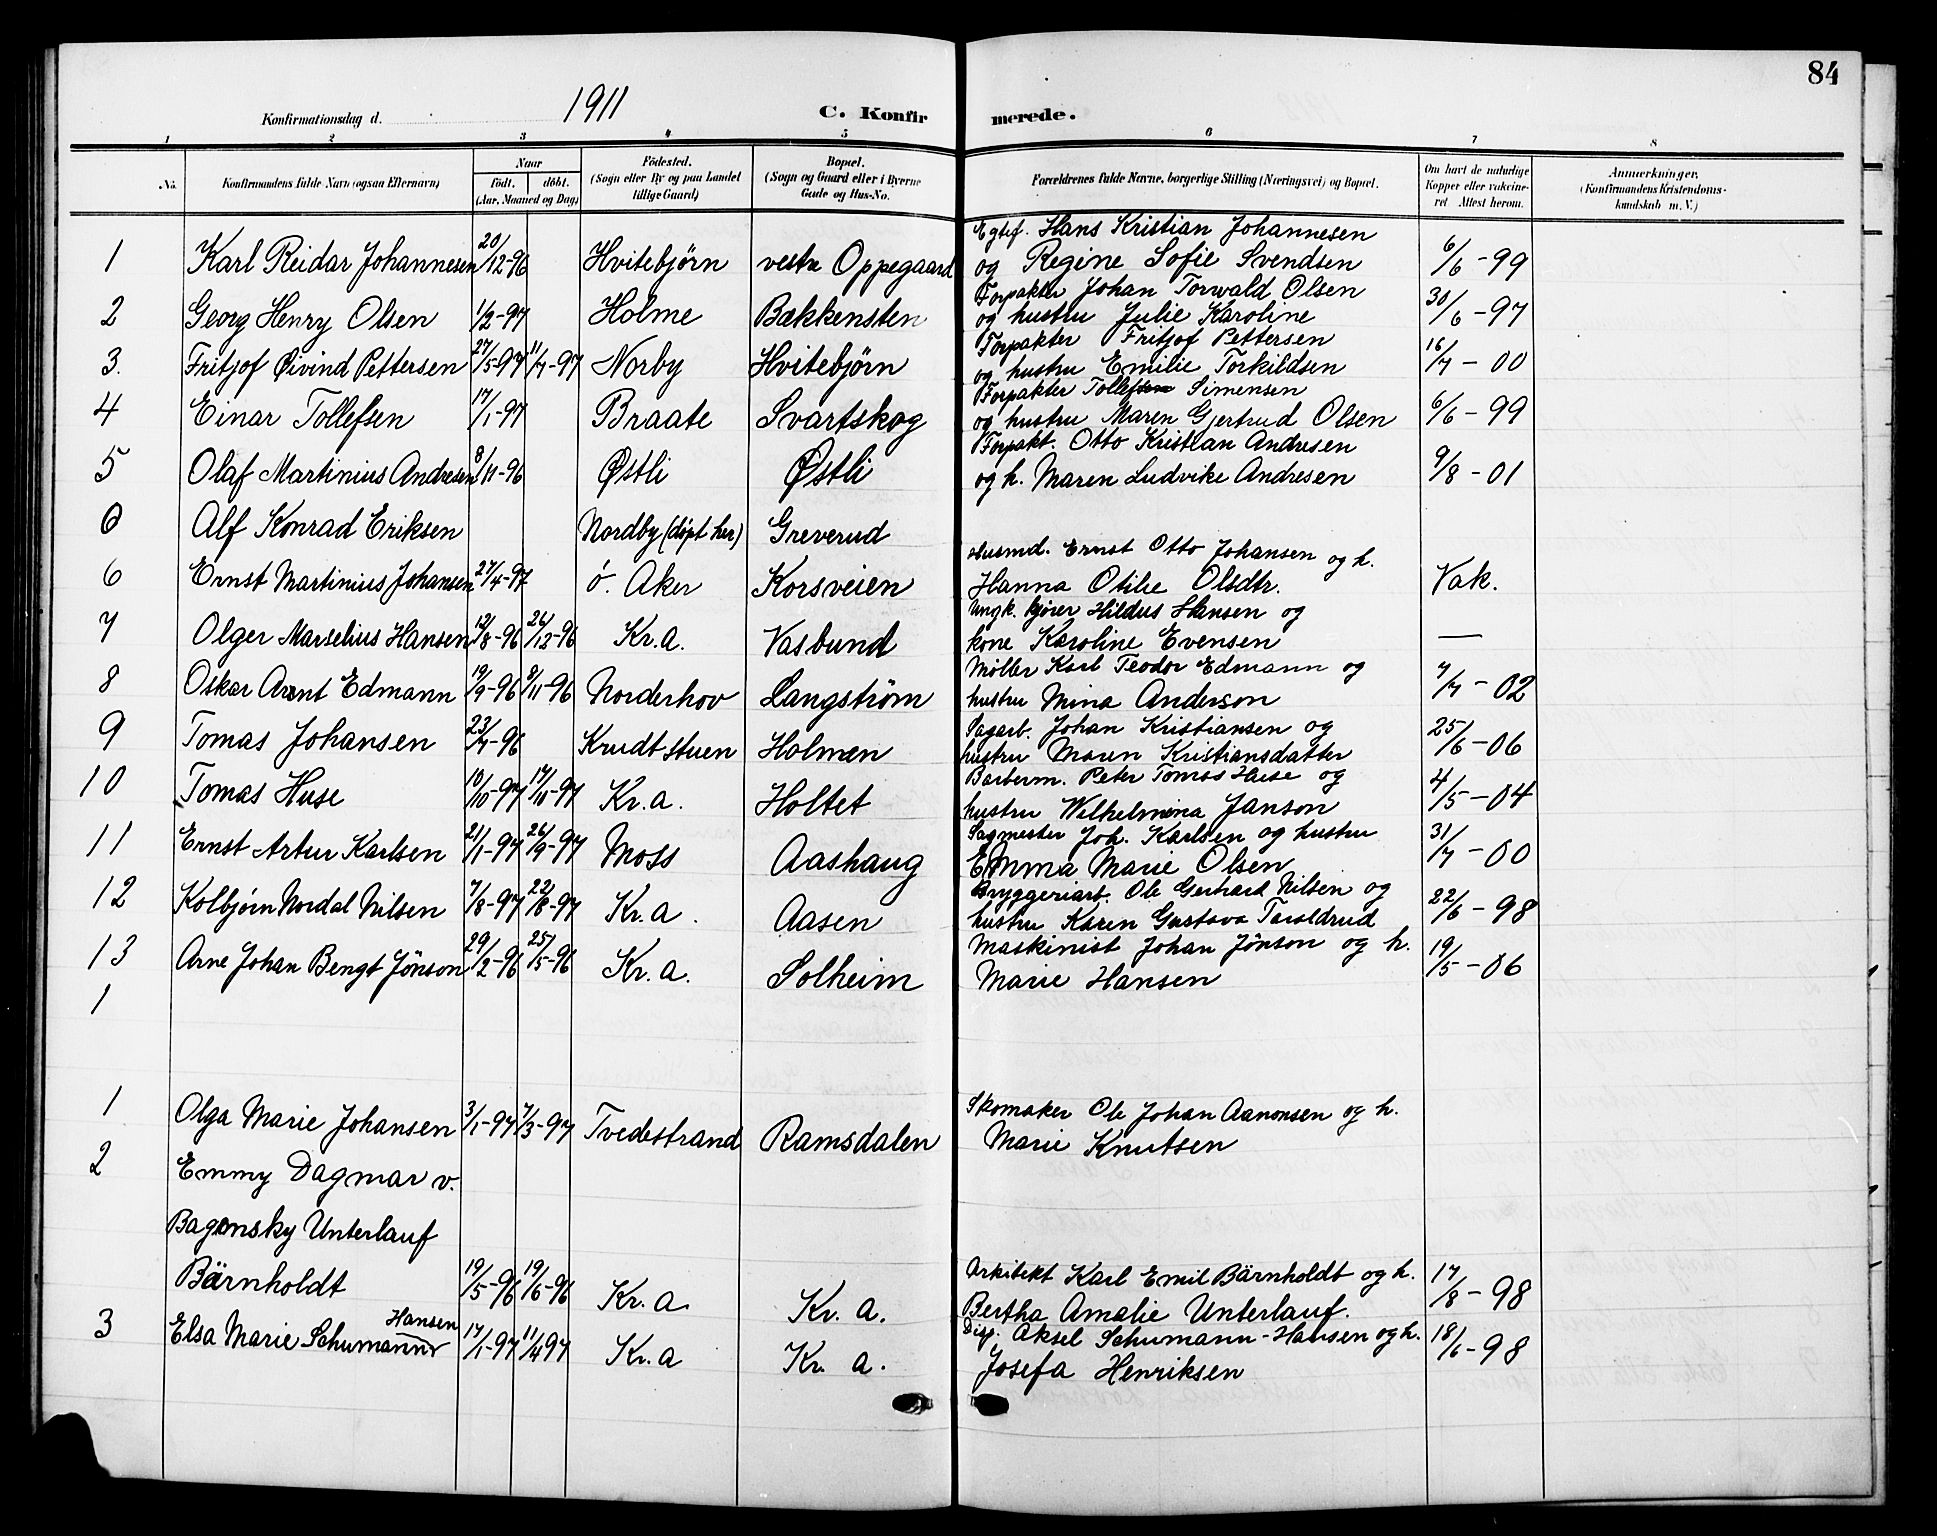 84
Konfirmationsdag d. 1911 C. Konfirmerede.
1 2 3 4 5 6 7 8
No. Konfirmandens fulde Navn (ogsaa Efternavn) Naar Födt. döbt. (Aar, Maaned og Dag) Födested. (Sogn eller By og paa Landet tillige Gaard) Bopæl. (Sogn og Gaard eller i Byerne Gade og Hus-No. Forældrenes fulde Navne, borgerlige Stilling (Næringsvei) og Bopæl. Om havt de naturlige Kopper eller vakcineret. Attest herom. Anmerkninger. (Konfirmandens Kristendomskundskab m. V.)
Egtef. Hans Kristian Johannesen
1 Karl Reidar Johannesen 20/12-96 Hvitebjørn vestre Oppegaard og Regine Sofie Svendsen 6/6-99
Forpakter Johan Torwald Olsen
2 Georg Henry Olsen 1/2-97 Holme Bakkensten og hustru Julie Karoline 30/6-97
Forpakter Fritjof Pettersen
3. Fritjof Øivind Pettersen 27/5-97 11/7-97 Norby Hvitebjørn og hustru Emilie Torkildsen 16/7-00
Forpakter Tollefsen Simensen
4 Einar Tollefsen 17/1-97 Braate Svartskog og hustru Maren Gjertrud Olsen 6/6-99
Forpakt. Otto Kristian Andresen
5 Olaf Martinius Andresen 8/11-96 Østli Østli og h. Maren Ludvike Andresen 9/8-01
0 Alf Konrad Eriksen Nordby (døpt her) Greverud
Husmd. Ernst Otto Johansen og h.
6 Ernst Martinius Johansen 27/4-97 ö. Aker Korsveien Hanna Otilie Olsdtr. Vak.
Ungk. kjører Hildus Hansen og
7 Olger Marselius Hansen 12/8-96 26/12-96 Kr.a. Vasbund kone Karoline Evensen —
Møller Karl Teodor Edmann og
8 Oskar Arent Edmann 19/9-96 8/11-96 Norderhov Langstrøm hustru Mina Anderson 7/7-02
Sagarb. Johan Kristiansen og
9 Tomas Johansen 23/7-96 Krudtstuen Holmen hustru Maren Kristiansdatter 25/6-06
Barberm. Peter Tomas Huse og
10 Tomas Huse 10/10-97 Kr.a. Holtet hustru Wilhelmina Janson 4/5-04
Sagmester Joh. Karlsen og hustru
11 Ernst Artur Karlsen 21/1-97 26/9-97 Moss Aashaug Emma Marie Olsen 31/7-00
Bryggeriarb. Ole Gerhard Nilsen og
12 Kolbjørn Nordal Nilsen 7/8-97 22/8-97 Kr.a. Aasen hustru Karen Gustava Taraldrud 22/6-98
Maskinist Johan Jönson og h.
13 Arne Johan Bengt Jönson 29/2-96 25/5-96 Kr.a. Solheim Marie Hansen 19/5-06
1
Skomaker Ole Johan Aanonsen og h.
1 Olga Marie Johansen 3/1-97 7/3-97 Tvedestrand Ramsdalen Marie Knutsen
2 Emmy Dagmar v.
Bagensky Unterlauf
Arkitekt Karl Emil Bärnholdt og h.
Bärnholdt 19/5-96 19/6-96 Kr.a. Kr.a. Bertha Amalie Unterlauf. 17/8-98
Hansen
Disp. Aksel Schumann-Hansen og h.
3 Elsa Marie Schumann 17/1-97 11/4 97 Kr.a Kr. a. Josefa Henriksen 18/6-98